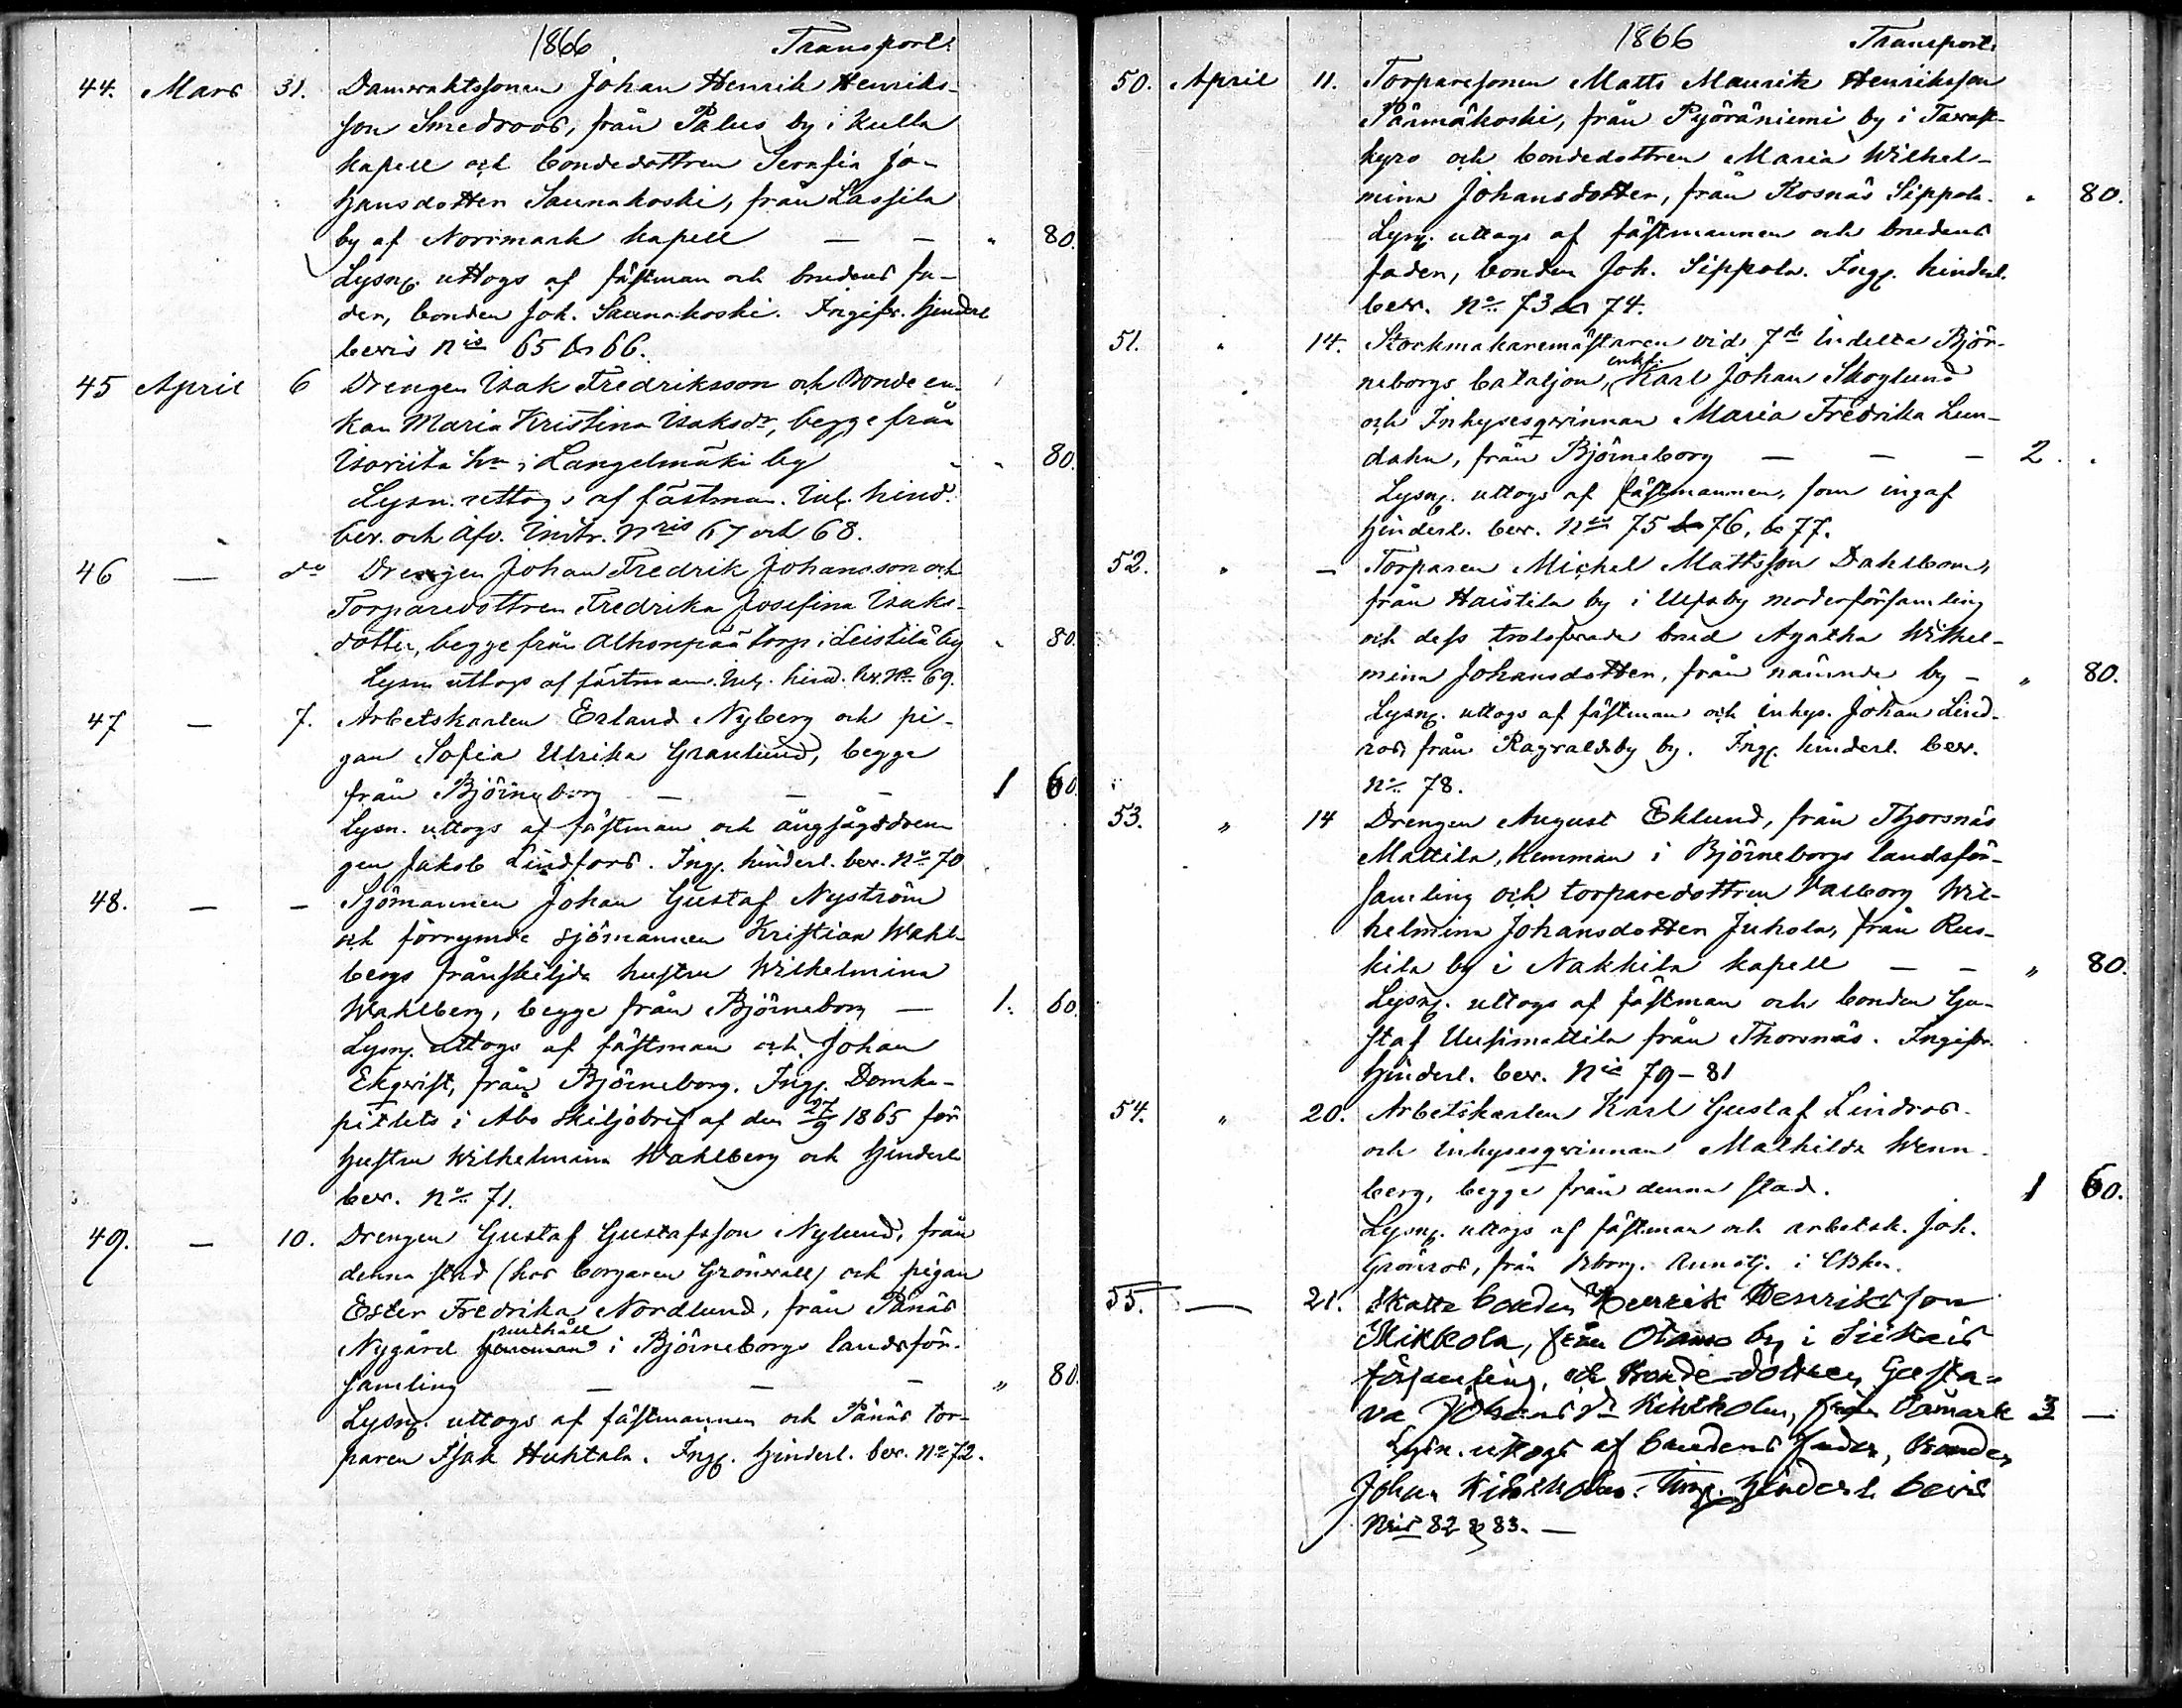 1866 Transport
44. Mars 31. Damvaktssonen Johan Henrik Henriks-
son Smedroos, från Palus by i Kulla
kapell och bondedottren Serafia Jo-
hansdotter Saunakoski, från Lassila
by af Norrmark kapell — — " 80.
Lysng. uttogs af fästman och brudens fa-
der, bonden Joh. Saunakoski. Ingifv. hinderl
bevis Nis 65 & 66.
45 April 6 Drengen Isak Fredriksson och Bonde en-
kan Maria Kristina Isaksdr, begge från
Isoriita hn i Langelmäki by " 80.
Lysn. uttogs af fästman. Inl. hind.
bev. och Afv. Instr. Nris 67 och 68.
46 — do Drengen Johan Fredrik Johansson och
Torparedottren Fredrika Josefina Isaks-
dotter, begge från Alhonpää torp i Leistilä by " 80.
Lysn uttogs af fästman. Inl. hind. bev. No 69.
47 — 7. Arbetskarlen Erland Nyberg och pi-
gan Sofia Ulrika Granlund, begge
från Björneborg — — — 1 60.
Lysn. uttogs af fästman och ångsågsdren
gen Jakob Lindfors. Ing. hinderl. bev. No 70
48. — — Sjömannen Johan Gustaf Nyström
och förrymde sjömannen Kristian Wahl-
bergs frånskiljda hustru Wilhelmina
Wahlberg, begge från Björneborg — 1. 60.
Lysng. uttogs af fästman och Johan
Ekqvist, från Björneborg. Ingg. Domka-
pitlets i Åbo skiljobref af den 27/9 1865 för
hustru Wilhelmina Wahlberg och hinderl
bev. No 71.
49. — 10. Drengen Gustaf Gustafsson Nylund, från
denna stad (hos borgaren Grönvall) och pigan
Ester Fredrika Nordlund, från Pånäs
rusthåll
Nygård hemman i Björneborgs landsför-
samling — — — " 80.
Lysng. uttogs af fästmannen och Pånäs tor-
paren Isak Huhtala. Ingg. hinderl. bev. No 72.
1866 Transport
50. April 11. Torparesonen Matts Mauritz Henriksson
Pärmäkoski, från Pyöräniemi by i Tavast-
kyro och bondedottren Maria Wilhel-
mina Johansdotter, från Rosnäs Sippola. " 80.
Lysng. uttogs af fästmannen och brudens
fader, bonden Joh. Sippola. Ingg. hinderl.
bev. No 73 & 74.
51. " 14. Stockmakaremästaren vid 7de Indelta Björ-
enkl.
neborgs bataljon, Karl Johan Skoglund
och Inhysesqvinnan Maria Fredrika Lun-
dahn, från Björneborg — — — 2. "
Lysng. uttogs af fästmannen, som ingaf
hinderl. bev. Nis 75 & 76, & 77.
52. " — Torparen Michel Mattsson Dahlbom,
från Haistila by i Ulfsby moderförsamling
och dess trolofvade brud Agatha Wilhel-
mina Johansdotter, från nämnde by — " 80.
Lysng. uttogs af fästman och inhys. Johan Lind-
ros från Ragvaldsby by. Ingg. hinderl. bev.
No 78.
53. " 14 Drengen August Eklund, från Thorsnäs
Mattila, Hemman i Björneborgs landsför-
samling och torparedottren Valborg Wil-
helmina Johansdotter Juhola, från Rus-
kila by i Nakkila kapell — — " 80.
Lysng. uttogs af fästman och bonden Gu-
staf Uusimattila från Thorsnäs. Ingifv.
hinderl. bev. Nis 79 - 81
54. " 20. Arbetskarlen Karl Gustaf Lindros
och inhysesqvinnan Mathilda Wenn-
berg, begge från denna stad. 1 60.
Lysng. uttogs af fästman och arbetsk. Joh.
Grönros, från Bborg. i
55. — 21. Skatte bonden Henrik Henriksson
Mikkola, från Otamo by i Siikais
församling, och Bonde-dottren Gusta-
va Johansdr från Påmark 3 —
Lysn. uttogs af brudens fader, Bonden
Johan Ingg. hinderl. bevis
Nris 82 & 83. —